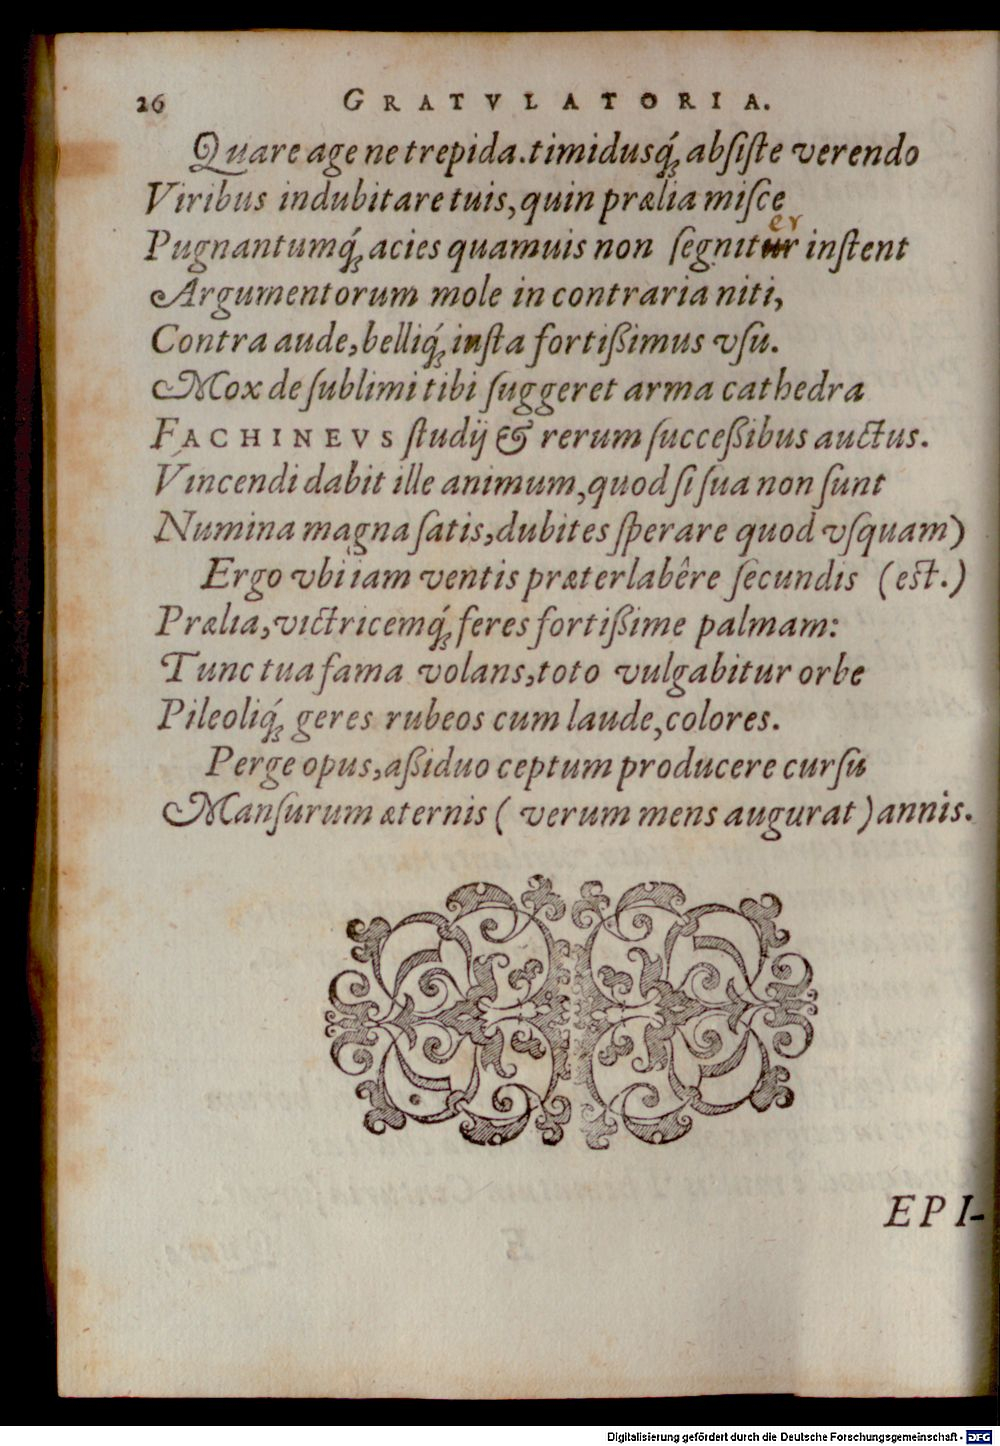 26 GRATVLATORIA.
Quare age ne trepida. timidusq́; absiſte verendo
Viribus indubitare tuis, quin prælia miſce
Pugnantumq́; acies quamuis non ſegnitur er inſtent
Argumentorum mole in contraria niti,
Contra aude, belliq́; inſta fortißimus vſu.
Mox de ſublimi tibi ſuggeret arma cathedra
FACHINEVS ſtudij & rerum ſucceßibus auctus.
Vincendi dabit ille animum, quod ſi ſua non ſunt
Numina magna ſatis, dubites ſperare quod vſquam)
Ergo vbi iam ventis præterlabêre ſecundis (est.)
Prælia, victricemq́; feres fortißime palmam:
Tunc tua fama volans, toto vulgabitur orbe
Pileoliq́; geres rubeos cum laude, colores.
Perge opus, aßiduo ceptum producere curſu
Manſurum æternis ( verum mens augurat ) annis.
EPI-
Digitalisierung gefördert durch die Deutsche Forschungsgemeinschaft - DFG